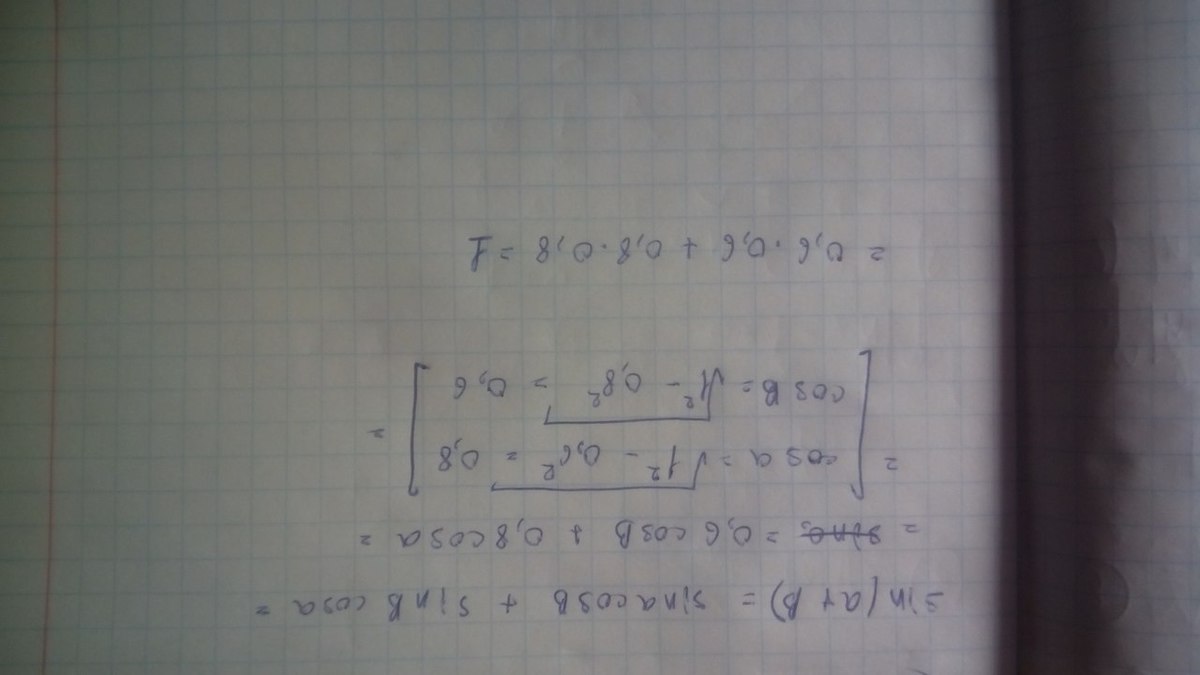 sin(a+B) = sinacosB + sinB cosa =
= sina = 0,6 cosB + 0,8cosa =
= [cos a = √1² - 0,6² = 0,8
cos B = √1² - 0,8² = 0,6] =
= 0,6 · 0,6 + 0,8 · 0,8 = 1